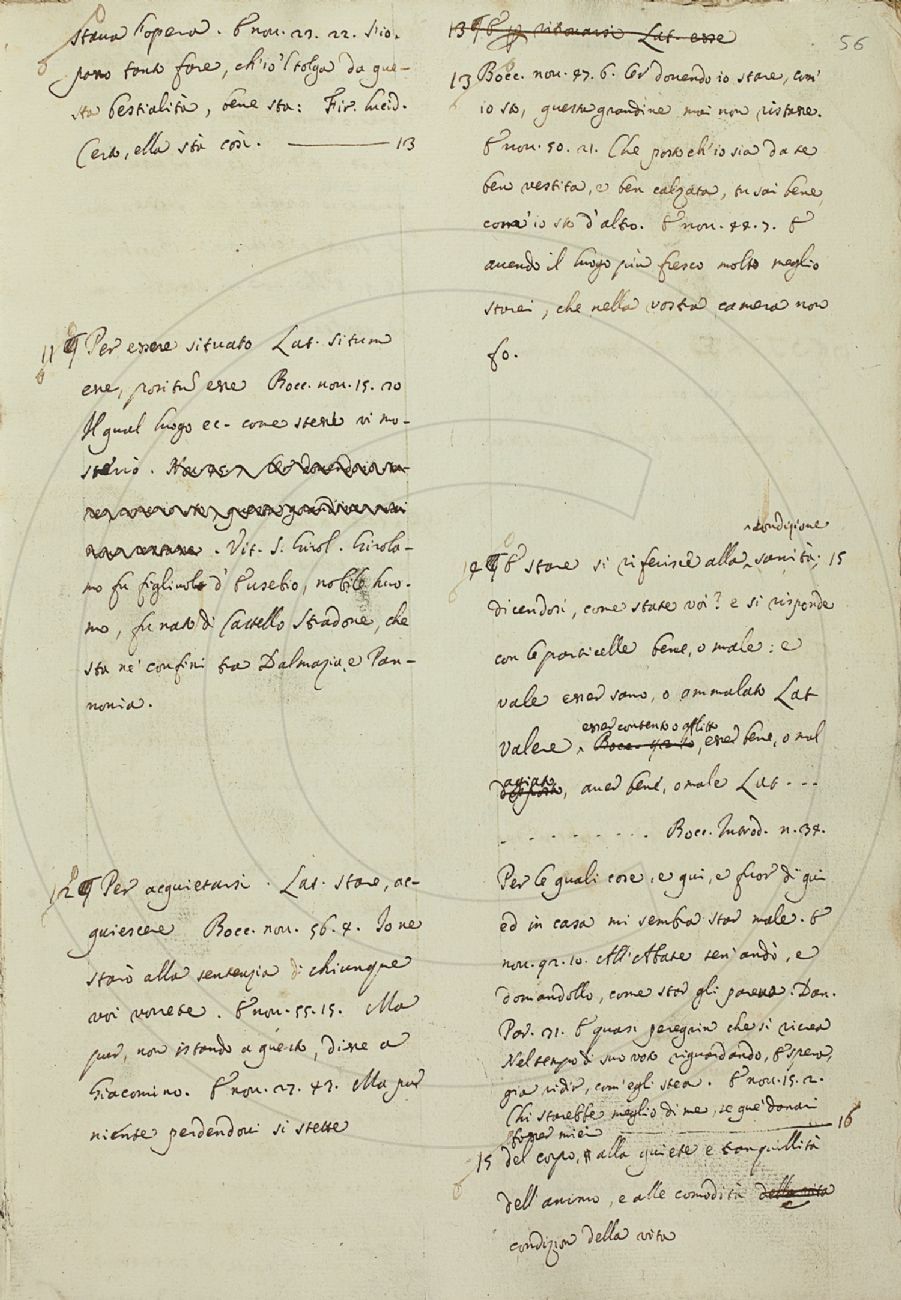 stava l'opera. E nov. 23. 22. s'io
posso tanto fare, ch'io 'l tolga da que-
sta bestialità, bene sta: Fir. Lucid.
Certo, ella stà così. 13
11 ¶ Per essere situato Lat. situm
esse, positum esse Bocc. nov. 15. 20
Il qual luogo ec. come stesse vi mo-
sterrò.
Vit. S. Girol. Girola-
mo fu figliuolo d'Eusebio, nobile huo-
mo, fu nato di Castello Stradone, che
sta ne' confini tra Dalmazia, e Pan-
nonia.
12 ¶ Per acquietarsi. Lat. stare, ac-
quiescere Bocc. nov. 56. 4. Io ne
starò alla sentenzia di chiunque
voi vorrete. E nov. 55. 15. Ma
pur, non istando a questo, disse a
Giacomino. E nov. 27. 43. Ma pur
niente perdendovi si stette
56
13 ¶ E ritrovarsi Lat. esse
13 Bocc. nov. 47. 6. Or dovendo io stare, com'
io sto, questa grandine mai non ristesse.
E nov. 50. 21. Che posto ch'io sia da te
ben vestita, e ben calzata, tu sai bene,
com'io sto d'altro. E nov. 44. 7. E
avendo il luogo più fresco molto meglio
starei, che nella vostra camera non
fo.
condizione
14 ¶ E stare si riferisce alla sanità; 15
dicendosi, come state voi? e si risponde
con le particelle bene, o male: e
vale esser sano, o ammalato Lat
esser contento o afflitto
valere, esser bene, o mal
agiato
, aver bene, o male Lat - - -
- - - - - - - - - Bocc. Introd. n. 34.
Per le quali cose, e qui, e fuor di qui
ed in casa mi sembra star male. E
nov. 92. 10. All'Abate sen'andò, e
domandollo, come star gli pareva. Dan.
Par. 31. E quasi peregrin che si ricrea
Nel tempio di suo voto riguardando, E spera,
gia ridir, com'egli stea. E nov. 15. 2.
Chi starebbe meglio di me, se que' danari
fosser miei 16
15 del corpo, alla quiete e tranquillità
dell'animo, e alle comodità della vita
condizion della vita